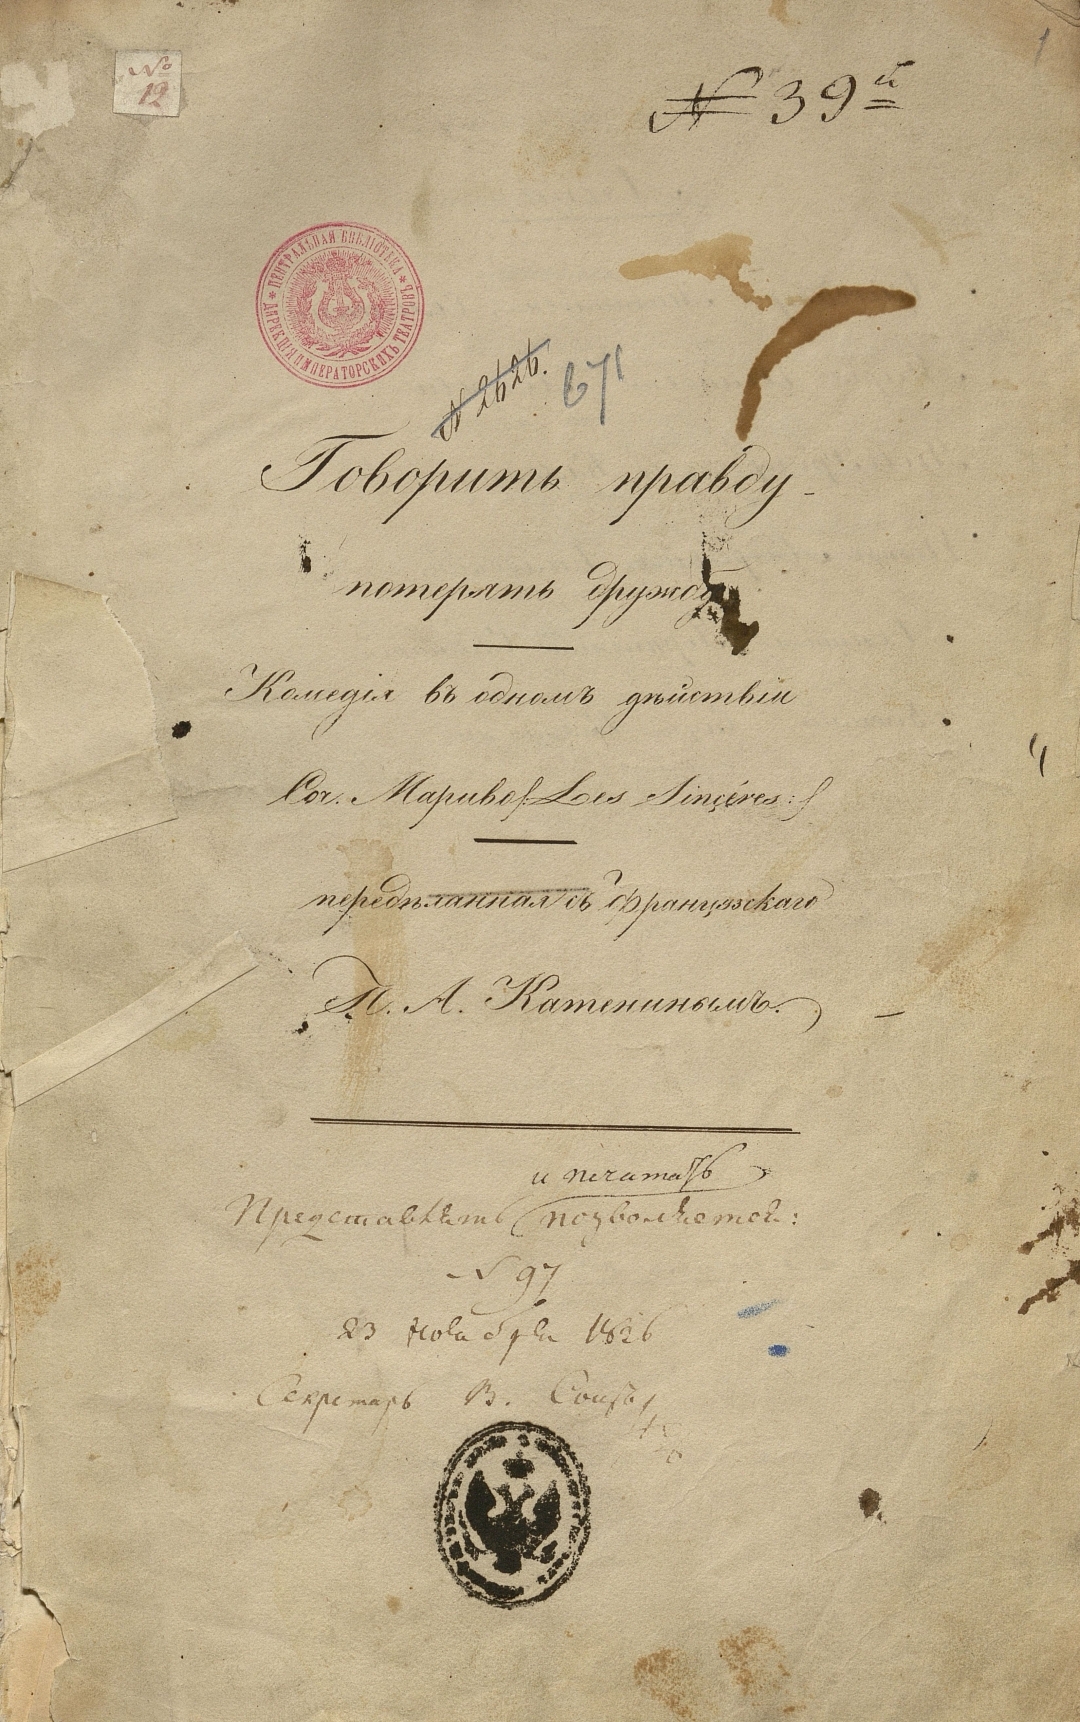 1
№
12
№ 39й
ЦЕНТРАЛЬНАЯ БИБЛІОТЕКА * ДИРЕКЦІИ ИМПЕРАТОРСКИХЪ ТЕАТРОВЪ *
№ 2626.
671
Говорить правду -
потерять дружбу
Комедія въ одномъ дѣйствіи
Соч. Мариво /: Les Sincéres :/
передѣланная съ Французскаго
П. А. Катенинымъ.
и печатать
Представлять позволяется:
№ 97
23 Ноября 1826
Секретарь В. Соцъ